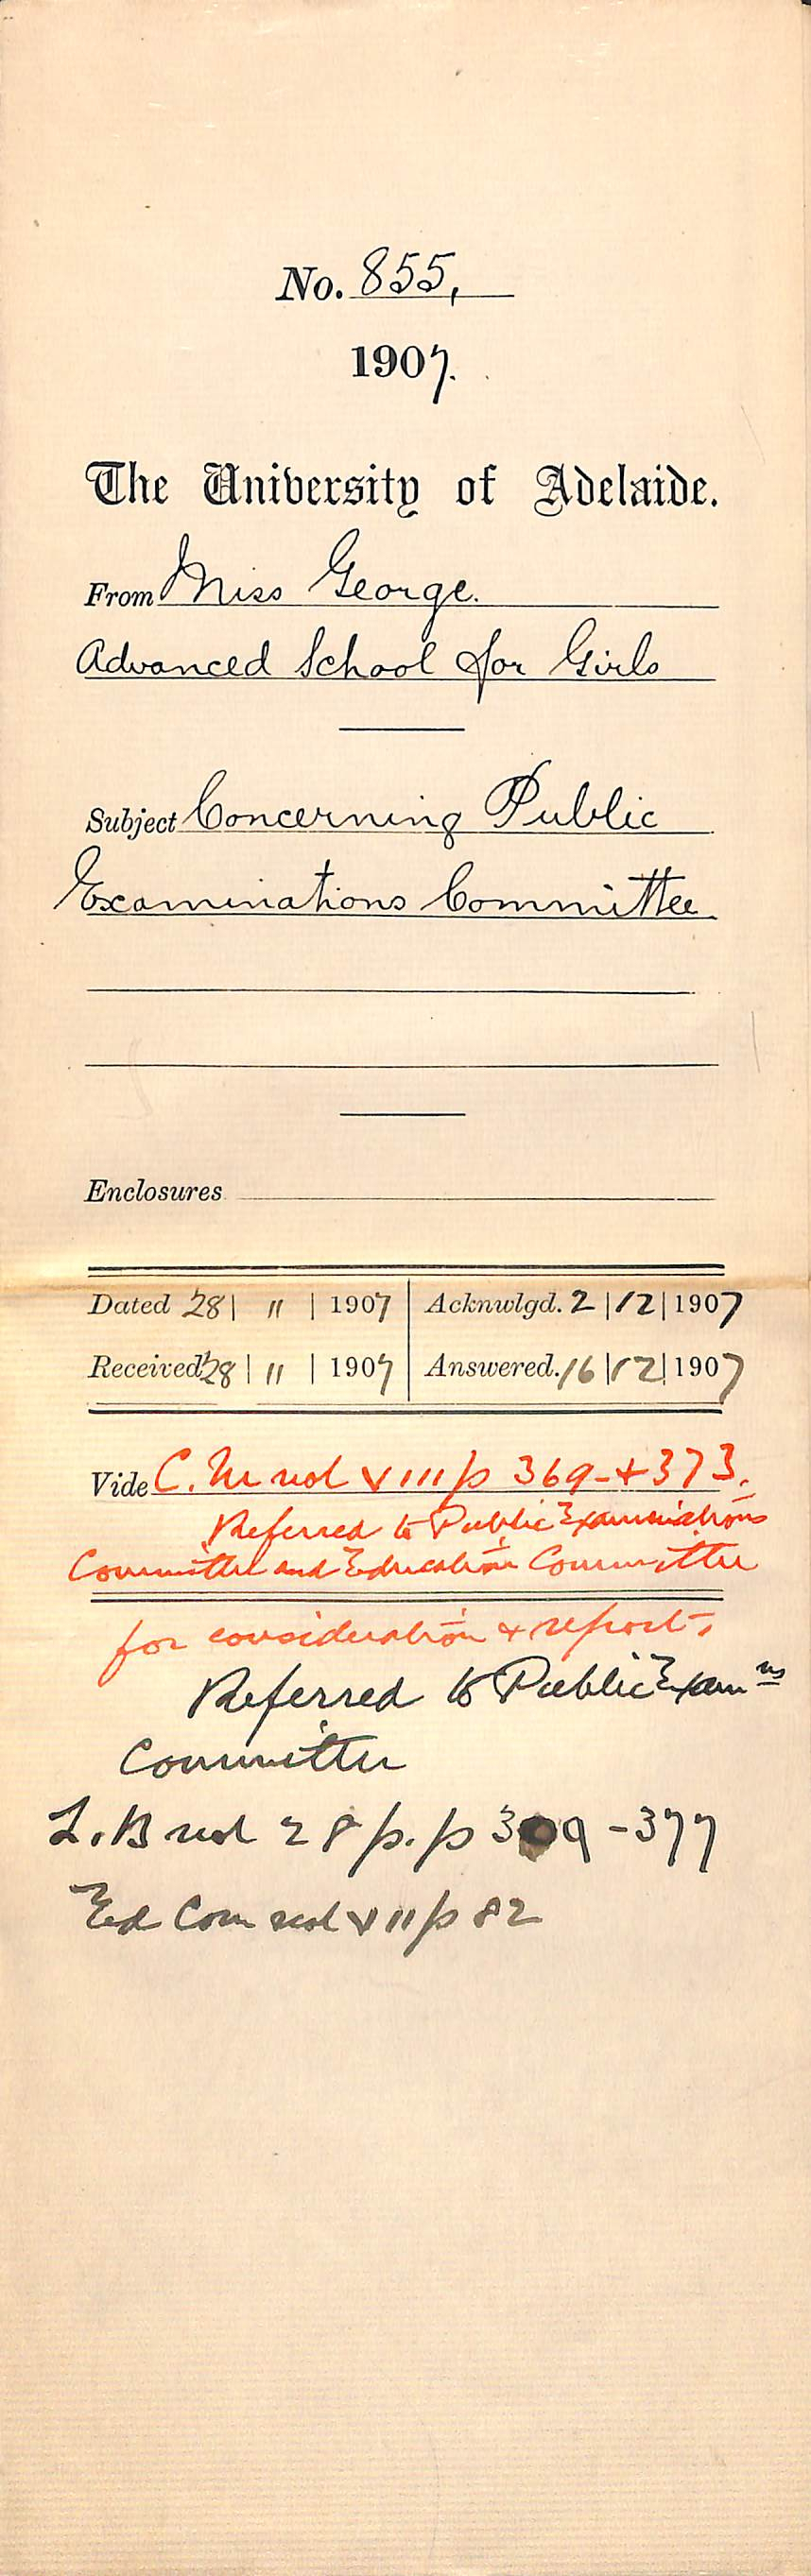 No. 855,
1907.
The University of Adelaide.
From Miss George.
Advanced School for Girls
Subject Concerning Public
Examinations Committee
Enclosures
Dated 28 | 11 | 1907 Acknwlgd. 2 | 12 | 1907
Received 28 | 11 | 1907 Answered. 16 | 12 | 1907
Vide C. M vol VIII p 369 - + 373.
Referred to Public Examinations
Committee and Education Committee
for consideration + report.
Referred to Public Examns
Committee
L. B vol 28 p. p 3 9 - 377
Ed Com vol VII p 82